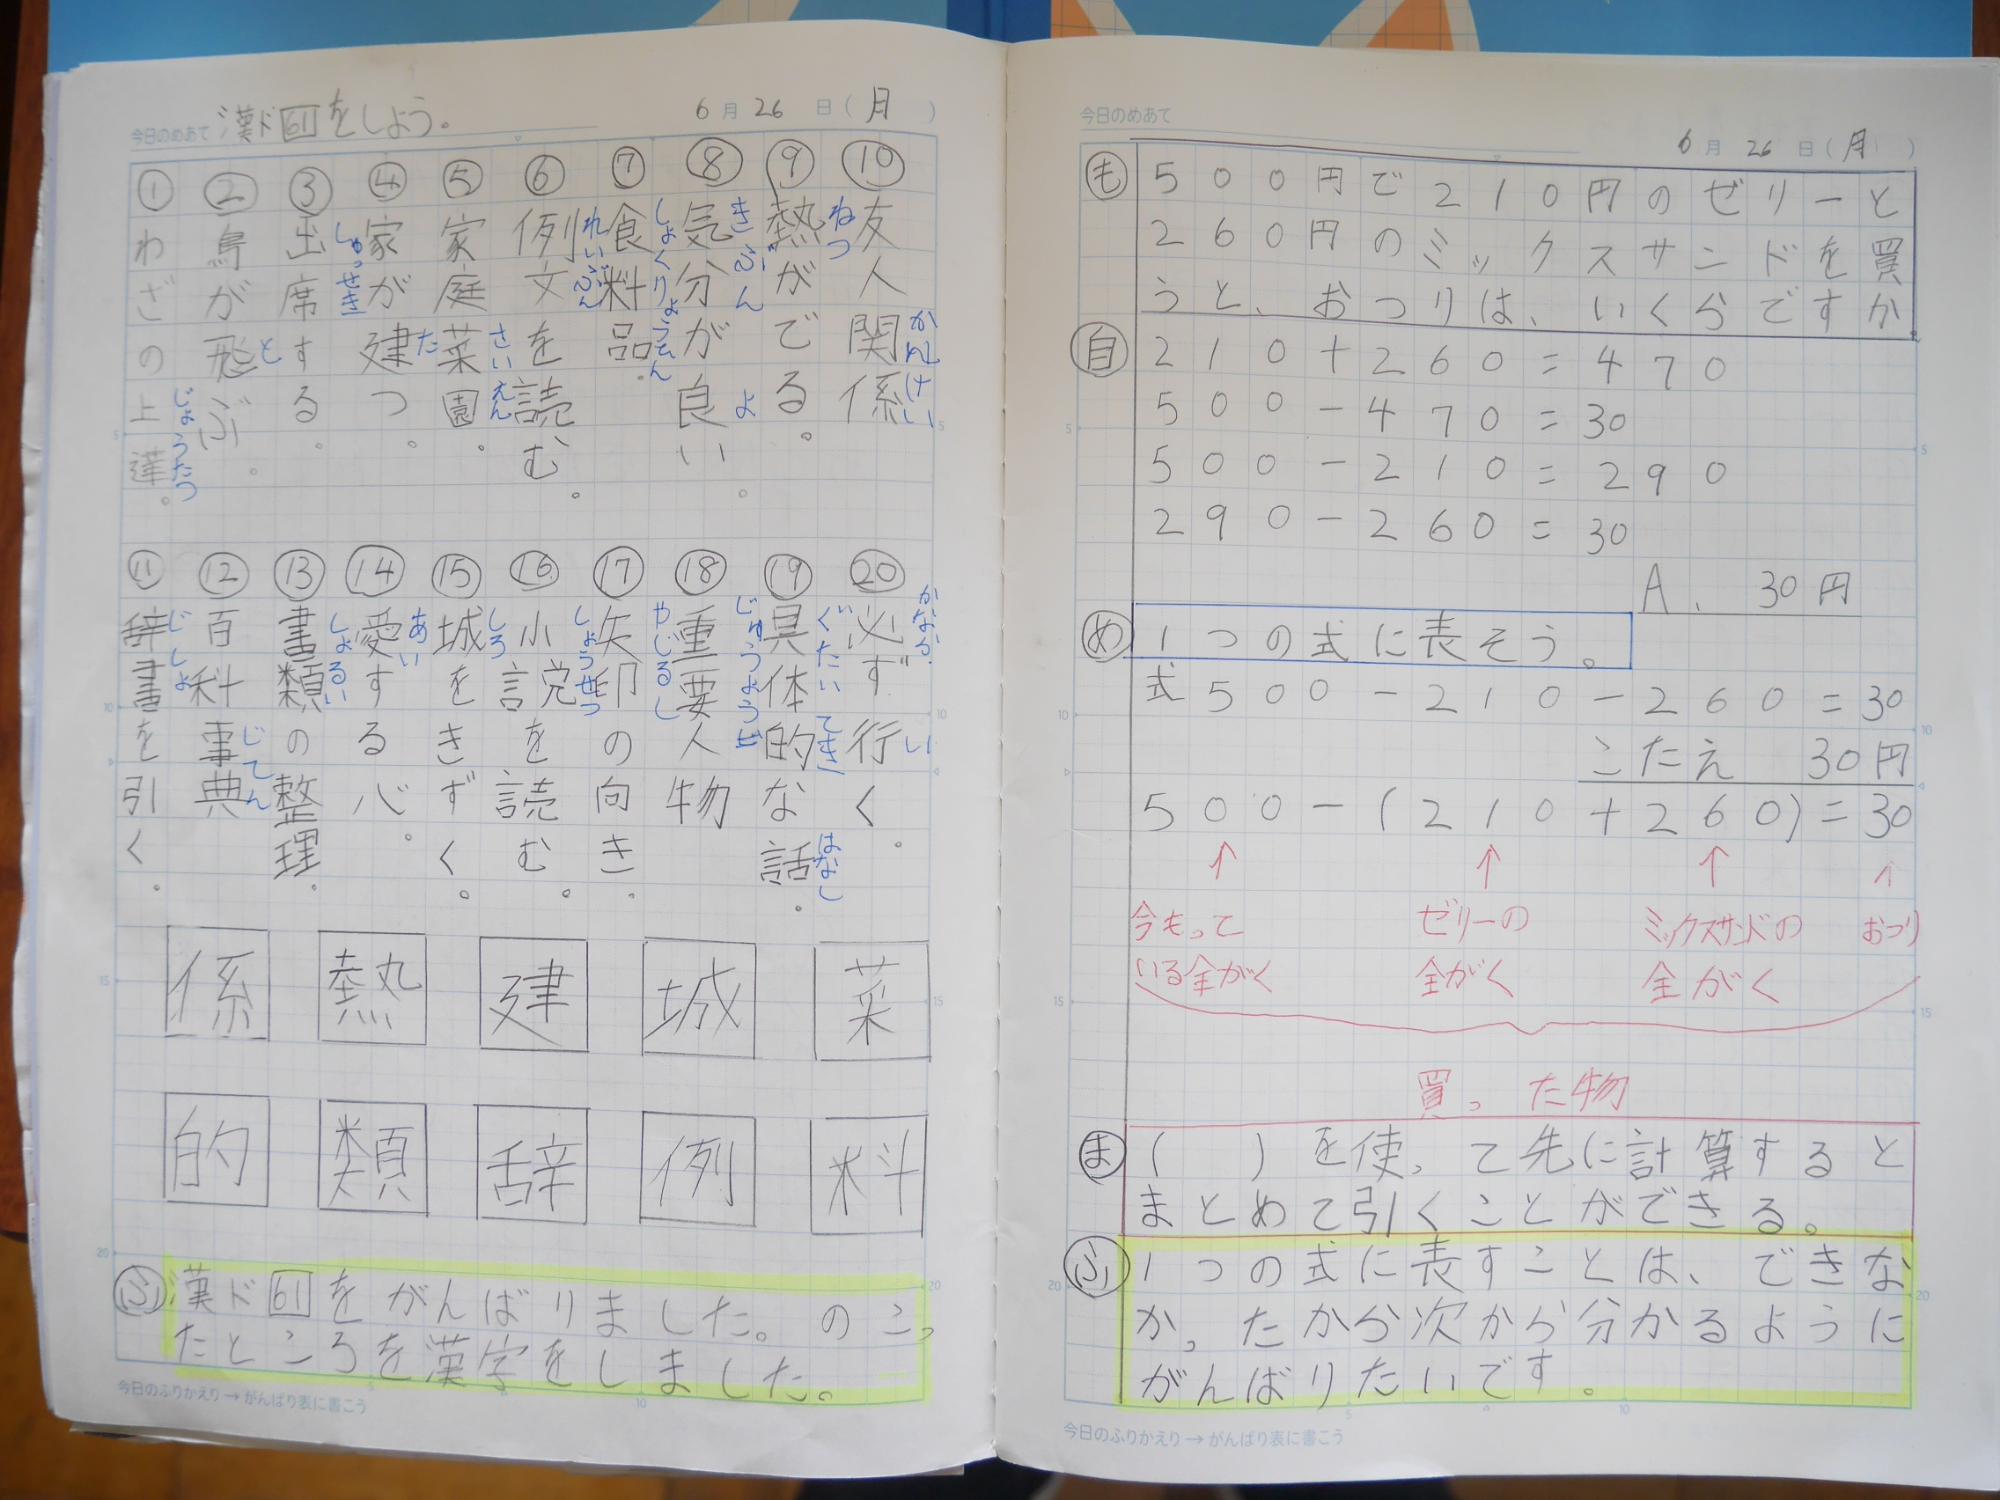 今日のめあて 漢ド61をしよう。
6月26日(月)
①わざの上達。じょうたつ
②鳥が飛ぶ。と
③出席する。しゅっせき
④家が建つ。た
⑤家庭菜園。さいえん
⑥例文を読む。れいぶん
⑦食料品。しょくりょうひん
⑧気分が良い。きぶん よ
⑨熱がでる。ねつ
⑩友人関係 かんけい
⑪辞書を引く。じしょ
⑫百科事典 じてん
⑬書類の整理。しょるい
⑭愛する心。あい
⑮城をきずく。しろ
⑯小説を読む。しょうせつ
⑰矢印の向き。やじるし
⑱重要人物 じゅうよう
⑲具体的な話。ぐたいてき はなし
⑳必ず行く。かなら い
係 熱 建 城 菜
的 類 辞 例 料
ふ 漢ド61をがんばりました。のこっ
たところを漢字をしました。
今日のふりかえり→がんばり表に書こう
今日のめあて
6月26日(月)
も 500円で210円のゼリーと
260円のミックスサンドを買
うと、おつりは、いくらですか
自 210+260=470
500-470=30
500-210=290
290-260=30
A、30円
め 1つの式に表そう。
式 500-210-260=30
こたえ 30円
500-(210+260)=30
↑ ↑ ↑ ↑
今もって ゼリーの ミックスサンドの おつり
いる全がく 全がく 全がく
買った物
ま ( )を使って先に計算すると
まとめて引くことができる。
ふ 1つの式に表すことは、できな
かったから次から分かるように
がんばりたいです。
今日のふりかえり→がんばり表に書こう